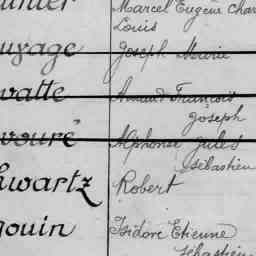 Marcel Eugène Char
Louis
uyage Joseph Marie
vatte Amand François
Joseph
vouré Alphonse Jules
Sébastien
hwartz Robert
gouin Isidore Etienne
Sébastien